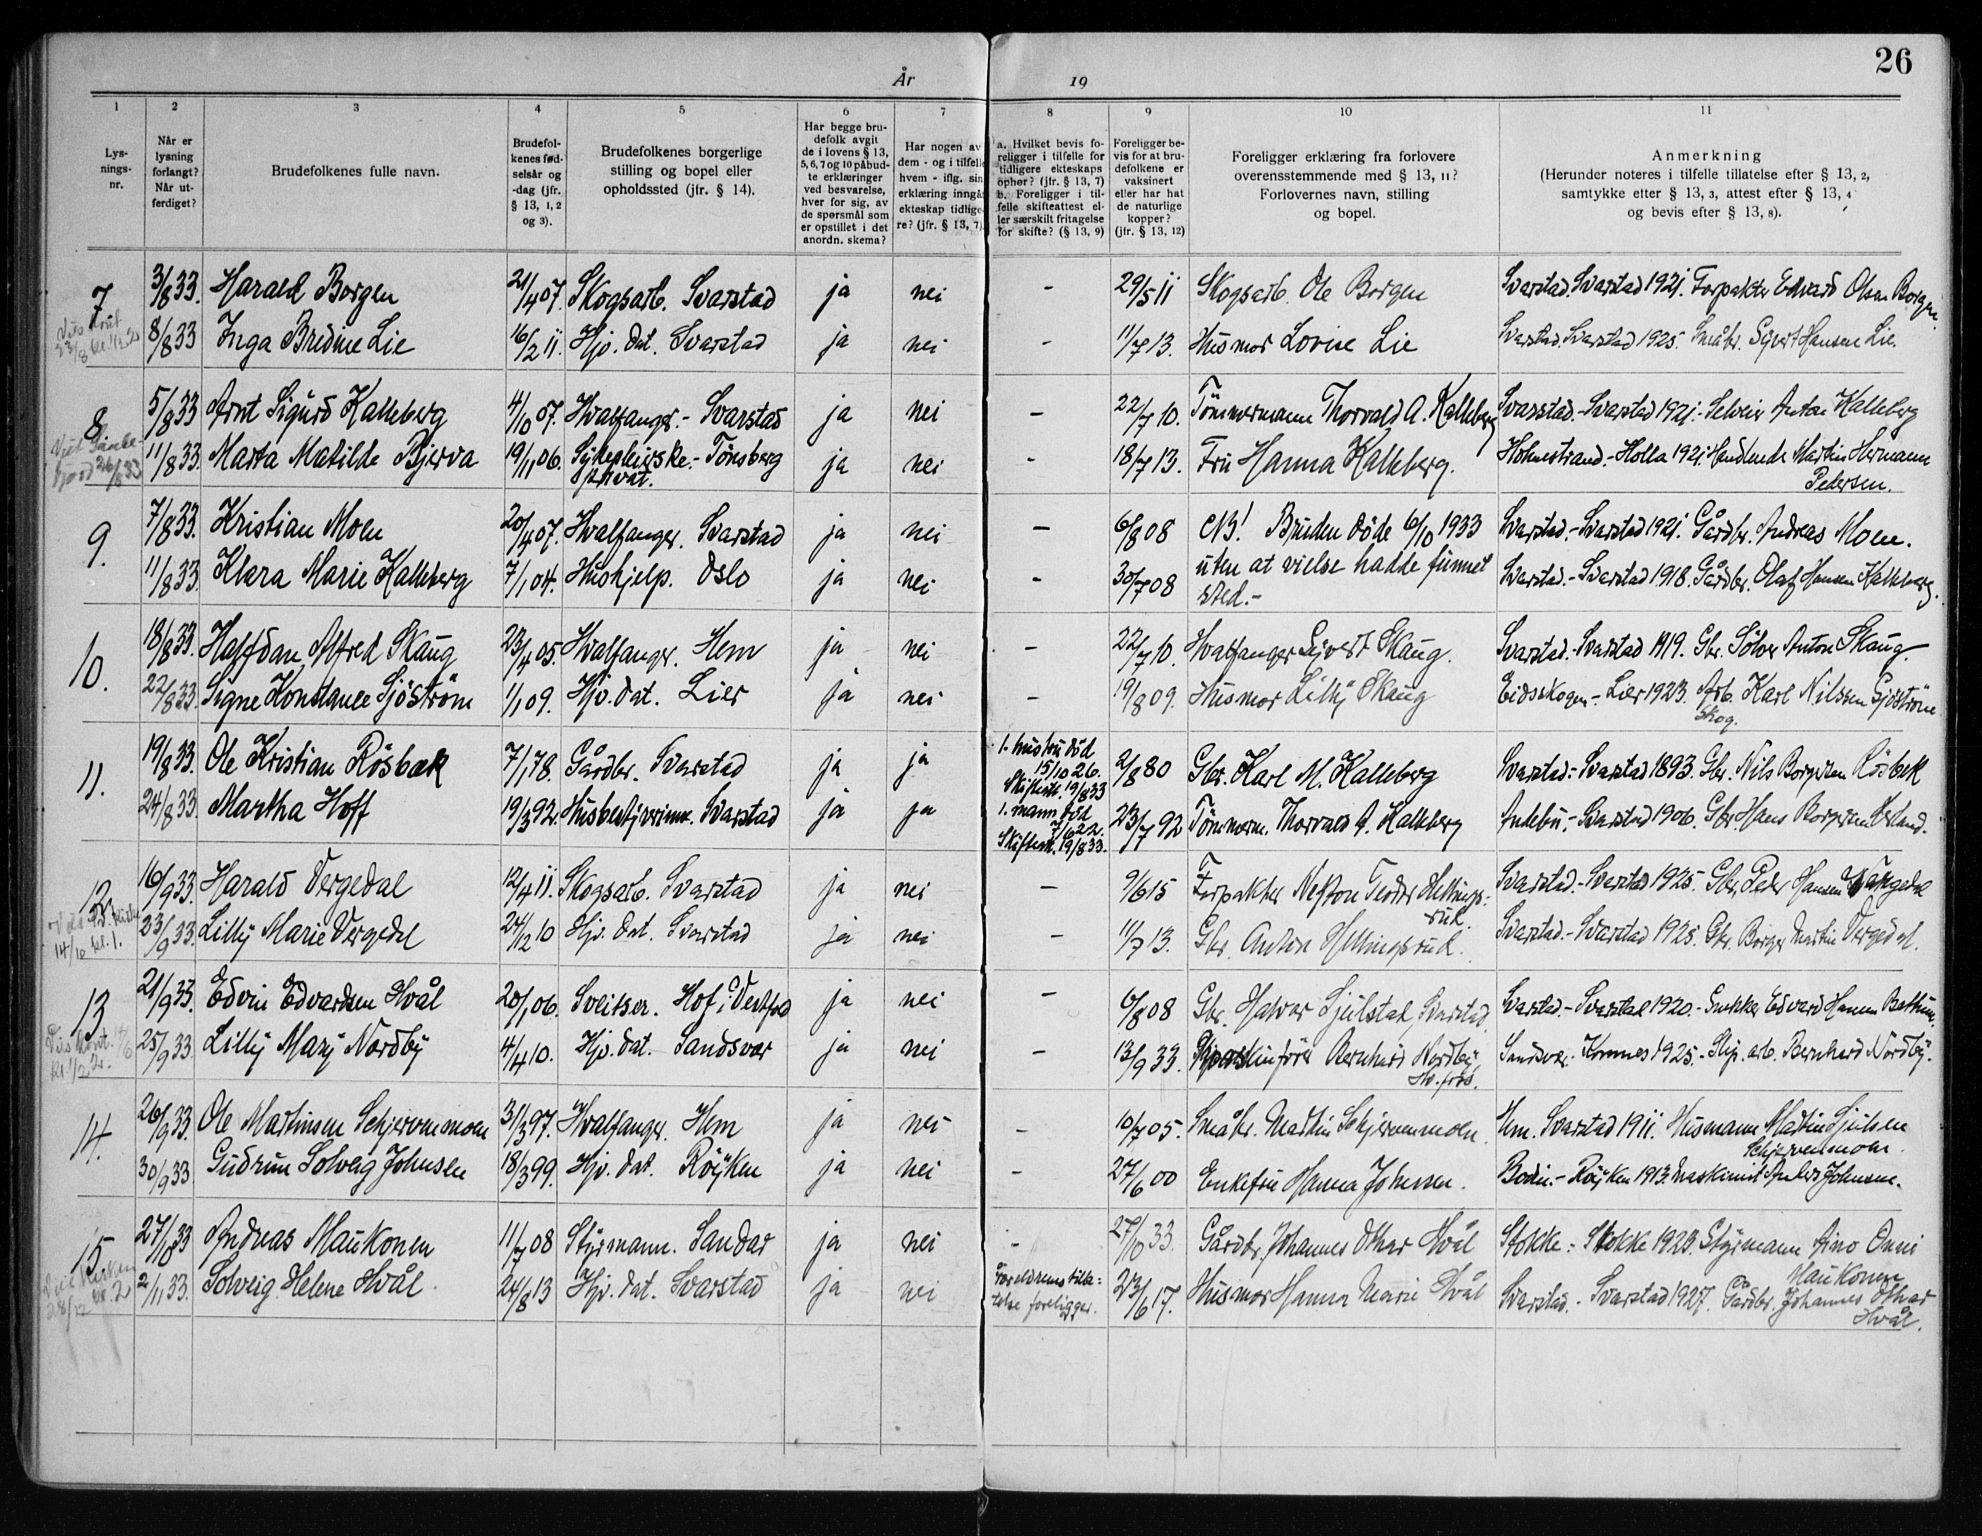 26
År 19
1 2 3 4 5 6 7 8 9 10 11
Lys-
nings-
nr.
Når er
lysning
forlangt?
Når ut-
ferdiget?
Brudefolkenes fulle navn.
Brudefol-
kenes fød-
selsår og
-dag (jfr.
§ 13, 1, 2
og 3).
Brudefolkenes borgerlige
stilling og bopel eller
opholdssted (jfr. § 14).
Har begge bru-
defolk avgit
de i lovens § 13,
5, 6, 7 og 10 påbud-
te erklæringer
ved besvarelse,
hver for sig, av
de spørsmål som
er opstillet i det
anordn. skema?
Har nogen av
dem - og i tilfelle
hvem - iflg. sin
erklæring inngå
ekteskap tidlige-
re? (jfr. § 13, 7)
a. Hvilket bevis fo-
religger i tilfelle for
tidligere ekteskaps
ophør? (jfr. § 13, 7)
b. Foreligger i til-
felle skifteattest el-
ler særskilt fritagelse
for skifte? (§ 13, 9)
Foreligger be-
vis for at bru-
defolkene er
vaksinert
eller har hat
de naturlige
kopper?
(jfr. § 13, 12)
Foreligger erklæring fra forlovere
overensstemmende med § 13, 11?
Forlovernes navn, stilling
og bopel.
Anmerkning
(Herunder noteres i tilfelle tillatelse efter § 13, 2,
samtykke efter § 13, 3, attest efter § 13, 4
og bevis efter § 13, 8).
7 3/8 33. Harald Borgen 21/4 07. Skogsarb. Svarstad ja nei - 29/5 11 Skogsarb. Ole Borgen Svarstad. Svarstad 1921. Forpakter Edvard Olsen Borgen.
8/8 33 Inga Bredine Lie 16/2 11. Hjv. dat. Svarstad ja nei - 11/7 13. Husmor Lovise Lie Svarstad. Svarstad 1925. Småbr. Sigvert Hansen Lie.
8 5/8 33 Arnt Sigurd Kalleberg 4/10 07. Hvalfanger. - Svarstad ja nei - 22/7 10. Tömmermann Thorvald A. Kalleberg Svarstad. - Svarstad 1921. Selveier Anton Kalleberg
11/8 33. Marta Matilde Bjerva 19/11 06. Sykepleierske. - Tönsberg ja nei - 18/7 13. Fru Hanna Kalleberg. Holmestrand. - Holla 1921. Handlende Martin Hermann
privat. Pedersen.
9. 7/8 33. Kristian Moen 20/4 07. Hvalfanger. Svarstad ja nei - 6/8 08 NB! Bruden döde 6/10 1933 Svarstad. - Svarstad 1921. Gårdbr. Andreas Moen.
11/8 33. Klara Marie Kalleberg 7/1 04. Hushjelp. Oslo ja nei - 30/7 08 uten at vielse hadde funnet Svarstad. - Svarstad 1918. Gårdbr. Olaf Hansen Kalleberg.
sted. -
10. 18/8 33. Halfdan Alfred Skaug 23/4 05. Hvalfanger. Hem ja nei - 22/7 10. Hvalfanger Sigvert Skaug. Svarstad. - Svarstad 1919. Gbr. Sölver Anton Skaug.
22/8 33. Signe Konstance Sjöström 1/1 09. Hjv. dat. Lier ja nei - 19/8 09. Husmor Lilly Skaug Eidsskogen. - Lier 1923. Arb. Karl Nilssen Sjöström
Skog.
11. 19/8 33. Ole Kristian Rösbæk 7/1 78. Gårdbr. Svarstad ja ja 1. hustru död 15/10 26. Skifteatt. 19/8 33 2/8 80 Gbr. Karl M. Kalleberg Svarstad. - Svarstad 1893. Gbr. Nils Borgersen Rösbæk
24/8 33. Martha Hoff 19/3 92. Husbestyrerinne. Svarstad ja ja 1. mann död 7/6 22. Skifteatt. 19/8 33. 23/7 92 Tömmerm. Thorvald A. Kalleberg Andebu. - Svarstad 1906. Gbr. Hans Borgersen
12 16/9 33. Harald Vergedal 12/4 11. Skogsarb. Svarstad ja nei - 9/6 15 Forpakter Hellings-
ruk. Svarstad. - Svarstad 1925. Gbr. Peder Hansen Vergedal
14/10 kl. 1. 23/9 33. Lilly Marie Vergedal 24/12 10 Hjv. dat. Svarstad ja nei - 11/7 13. Gbr. Anton Hellingsruk. Svarstad. - Svarstad 1925. Gbr. Borger Martin Vergedal.
13 21/9 33. Edvin Edvardsen Hvål 20/1 06. Sveitser. Hof i Vestfold ja nei - 6/8 08 Gbr. Halvor Sjulstad, Svarstad. Svarstad. - Svarstad 1920. - Snekker Edvard Hansen
25/9 33. Lilly Mary Nordby 4/4 10. Hjv. dat. Sandsvær ja nei - 13/9 33. Bernhard Nordby, Sandsvær. - Komnes 1925. - Slip. arb. Bernhard Nordby.
14. 26/9 33. Ole Martinsen Schjervenmoen 31/3 97. Hvalfanger. Hem ja nei - 10/7 05. Småbr. Martin Schjervenmoen. Hem. Svarstad 1911. Husmann Martin Sjulsen
Schjervenmoen.
30/9 33 Gudrun Solveig Johnsen 18/3 99. Hjv. dat. Röyken ja nei - 27/6 00 Enkefru Hanna Johnsen. Bodin. - Röyken 1913. Maskinist Anders Johnsen.
15 27/10 33 Andreas Maukonen 11/7 08 Styrmann. Sandar ja nei - 27/10 33. Gårdbr. Johannes Othar Hvål Stokke. - Stokke 1923. Styrmann Aino Onni
Maukonen
2/11 33. Solveig Helene Hvål. 24/8 13 Hjv. dat. Svarstad ja nei Foreldrenes tilla-
telse foreligger. 23/6 17. Husmor Hanna Marie Hvål Svarstad. - Svarstad 1927. Gårdbr. Johannes Othar
Hvål.